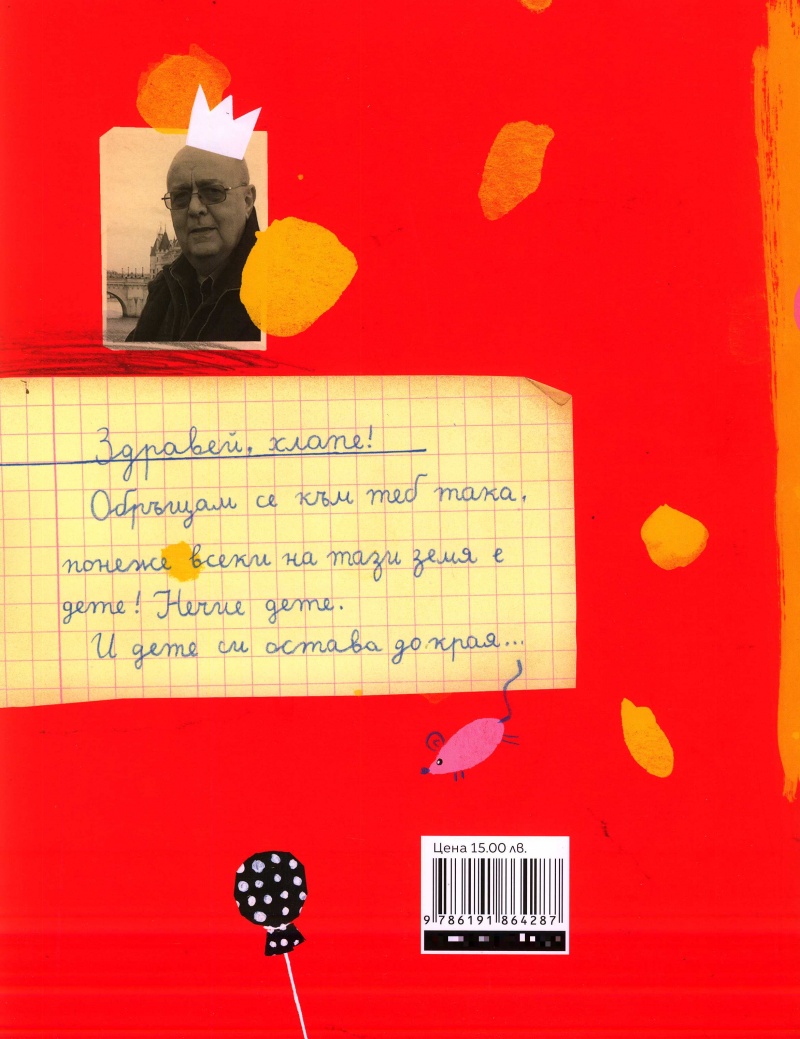 Здравей, хлапе!
Обръщам се към теб така,
понеже всеки на тази земя е
дете! Нечие дете.
И дете си остава докрая...
Цена 15.00 лв.
9 786191 864287